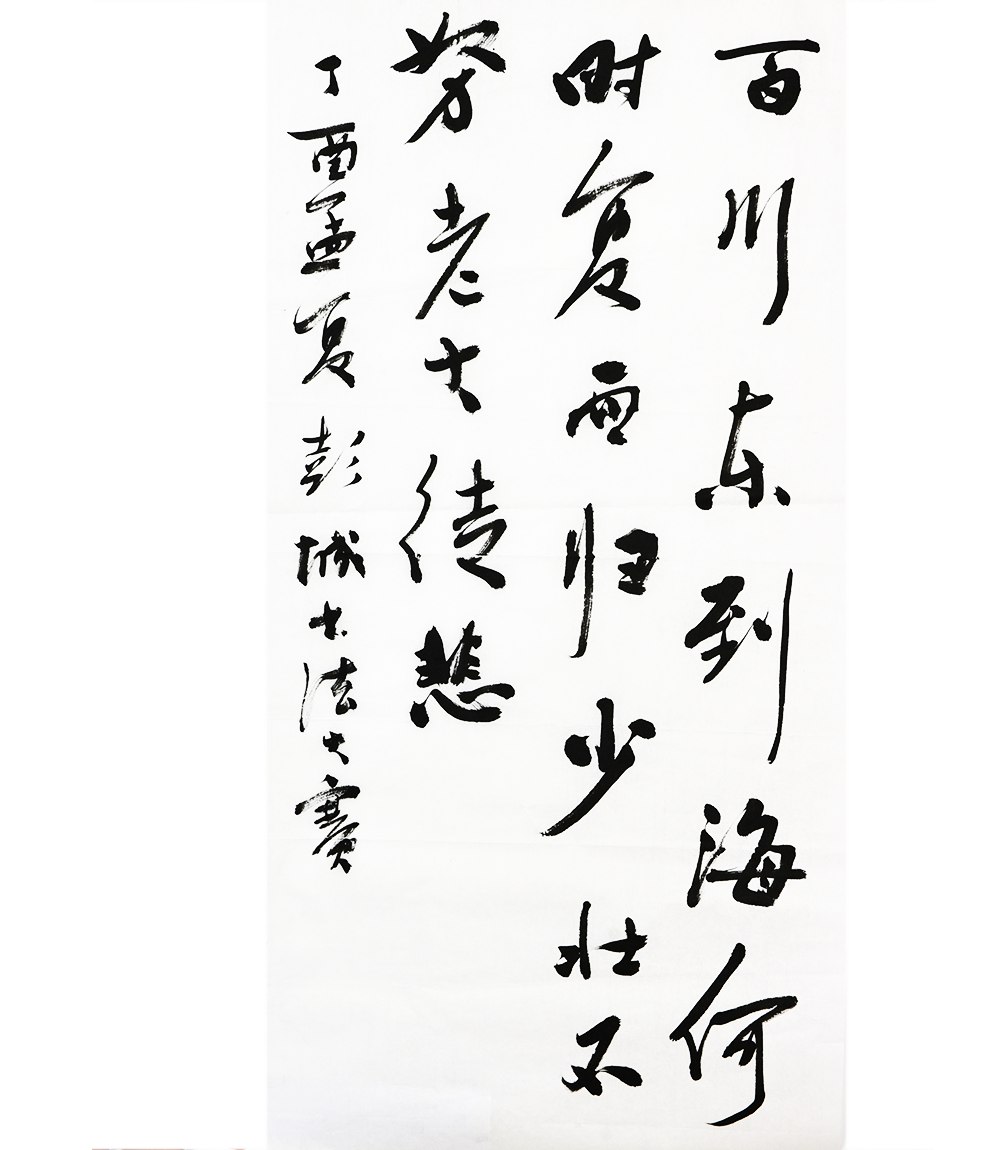 百川东到海何
时复西归少壮不
努老大徒悲
丁酉孟夏彭城书法大赛